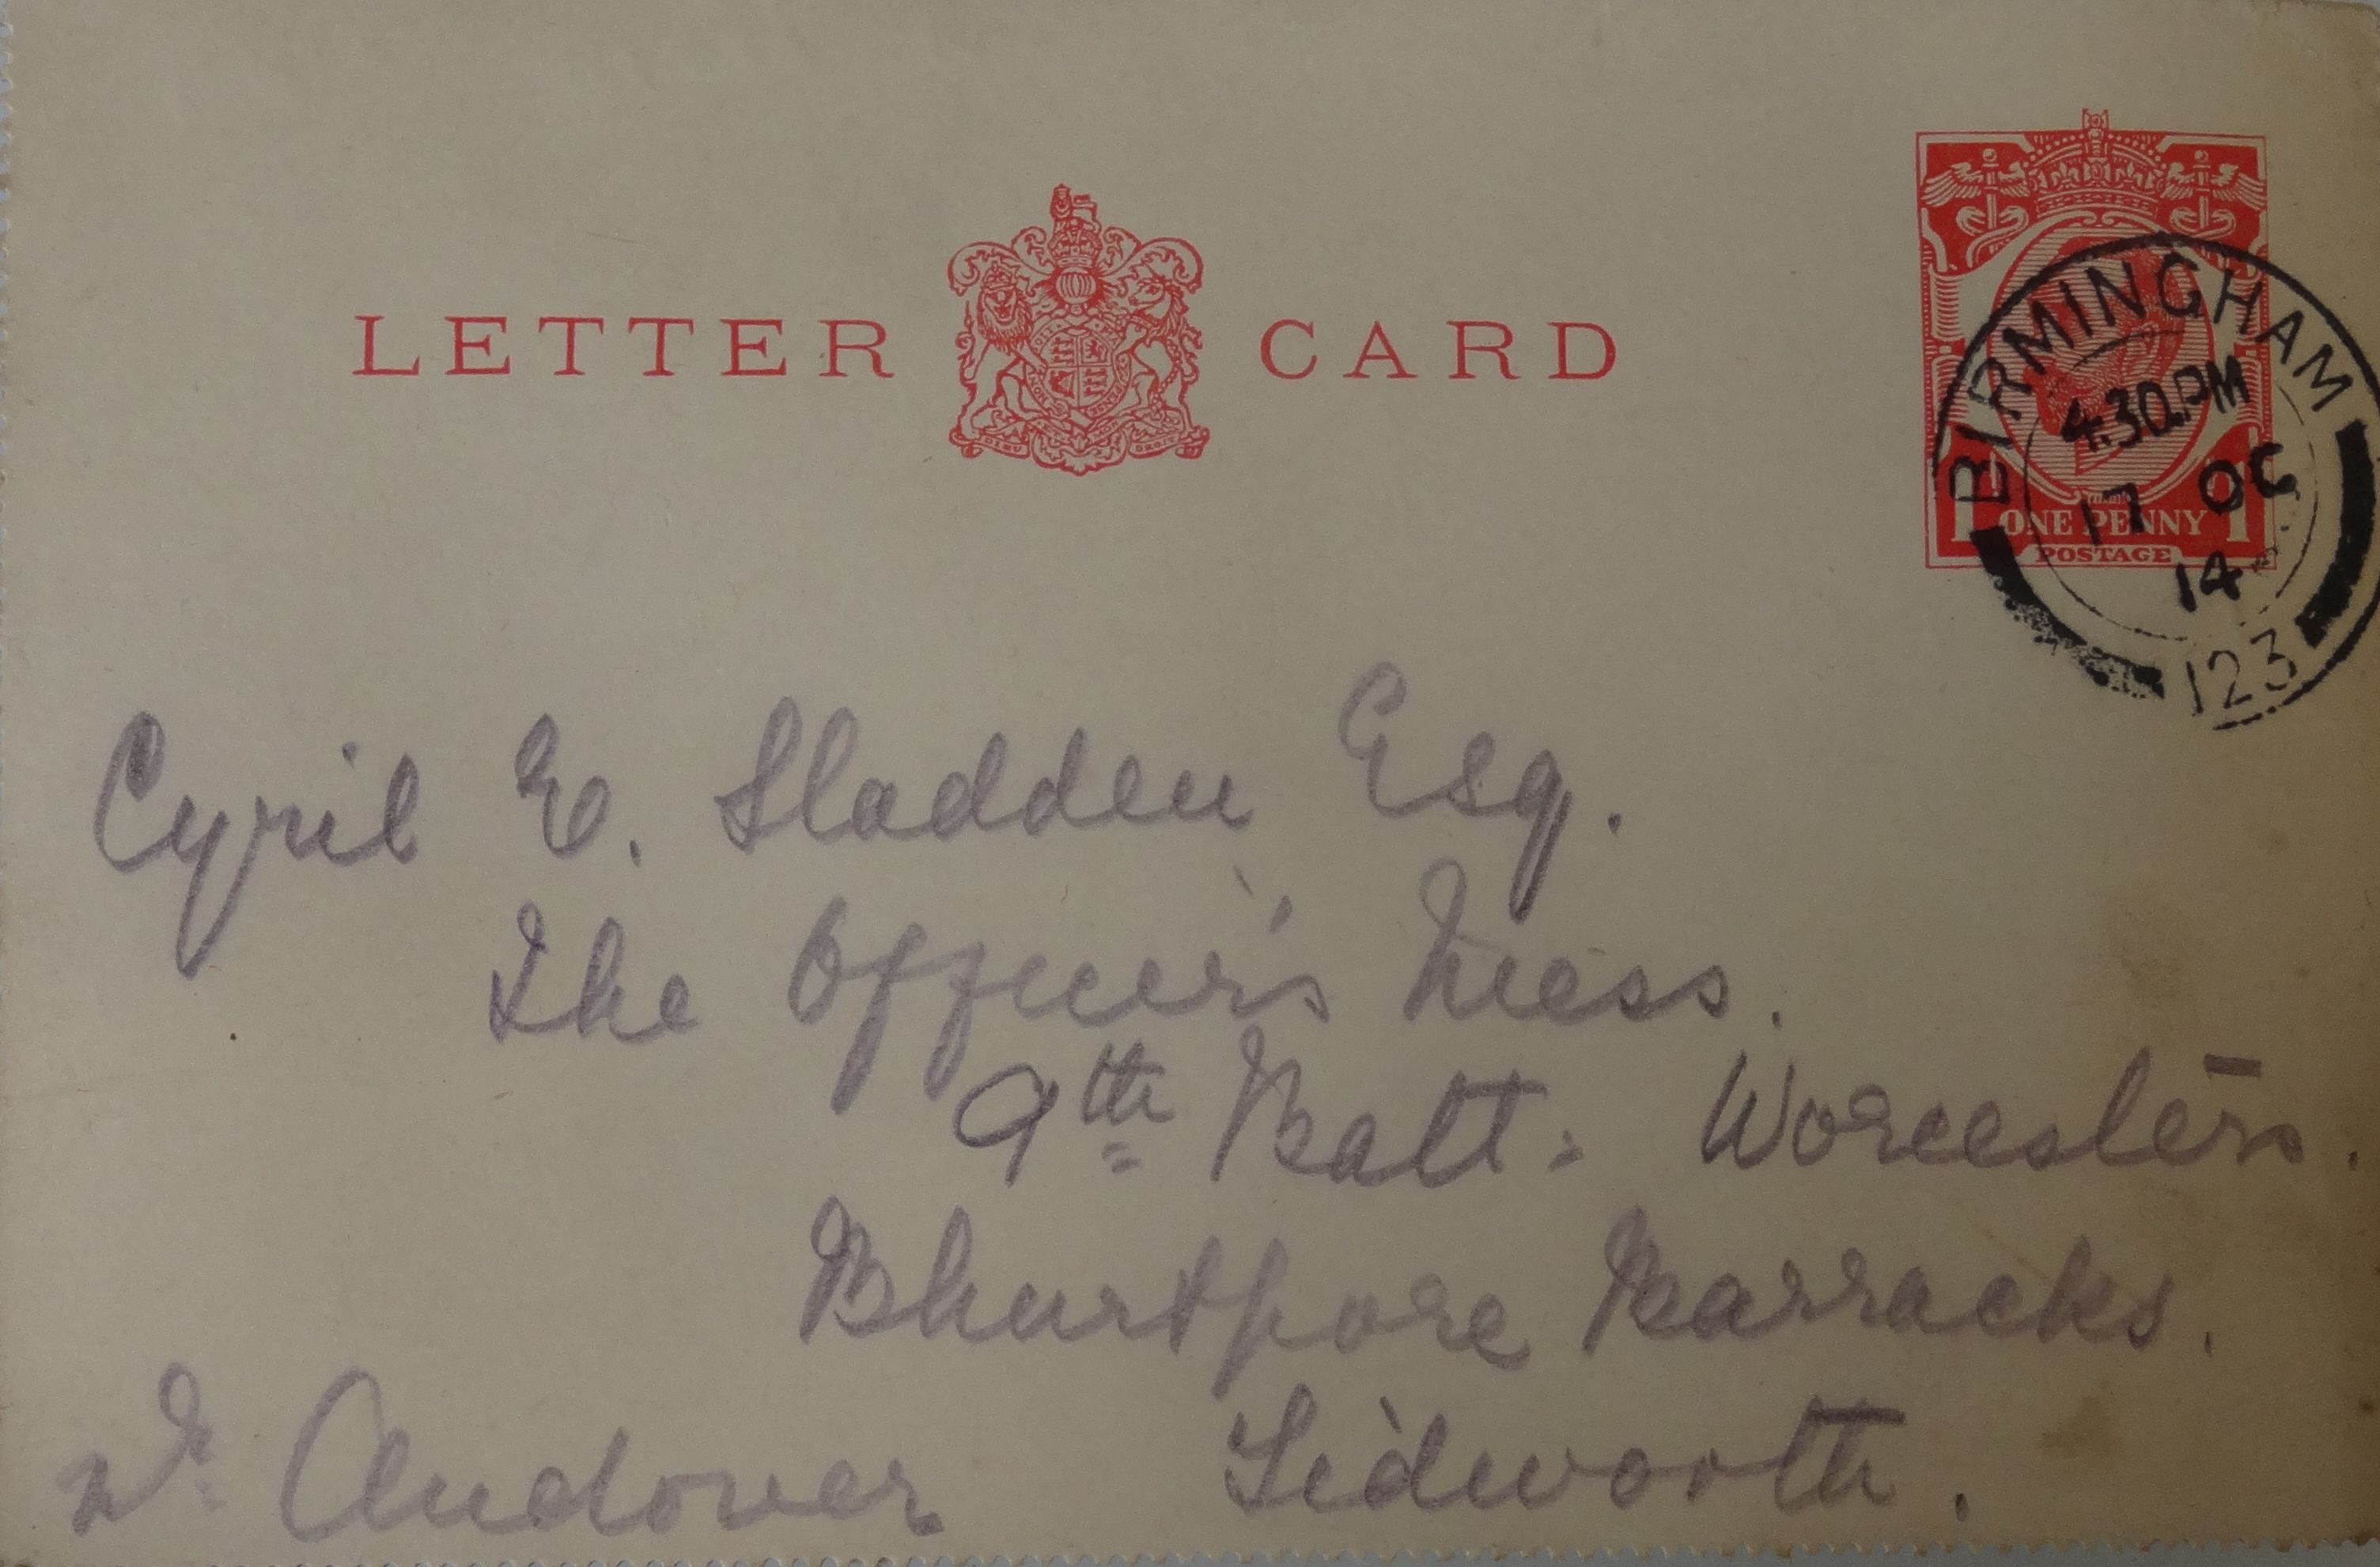 LETTER CARD
BIRMINGHAM
4.30 PM
17 OC
14
123
1 ONE PENNY 1
POSTAGE
Cyril E. Sladden Esq.
The Officer's Mess.
9th Batt. Worcesters.
Bhurtpore Barracks.
Tidworth.
Nr. Andover